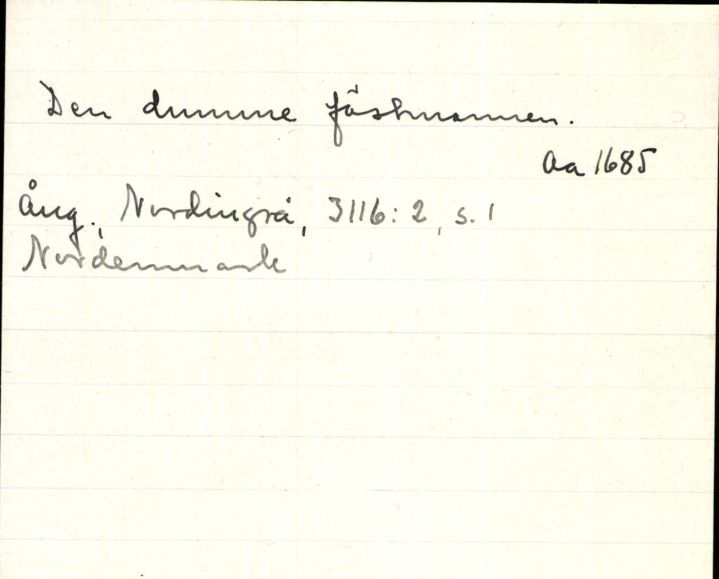 Den dumme fästmannen.
Aa 1685
Ång., Nordingrå, 3116:2, s. 1
Nordenmark